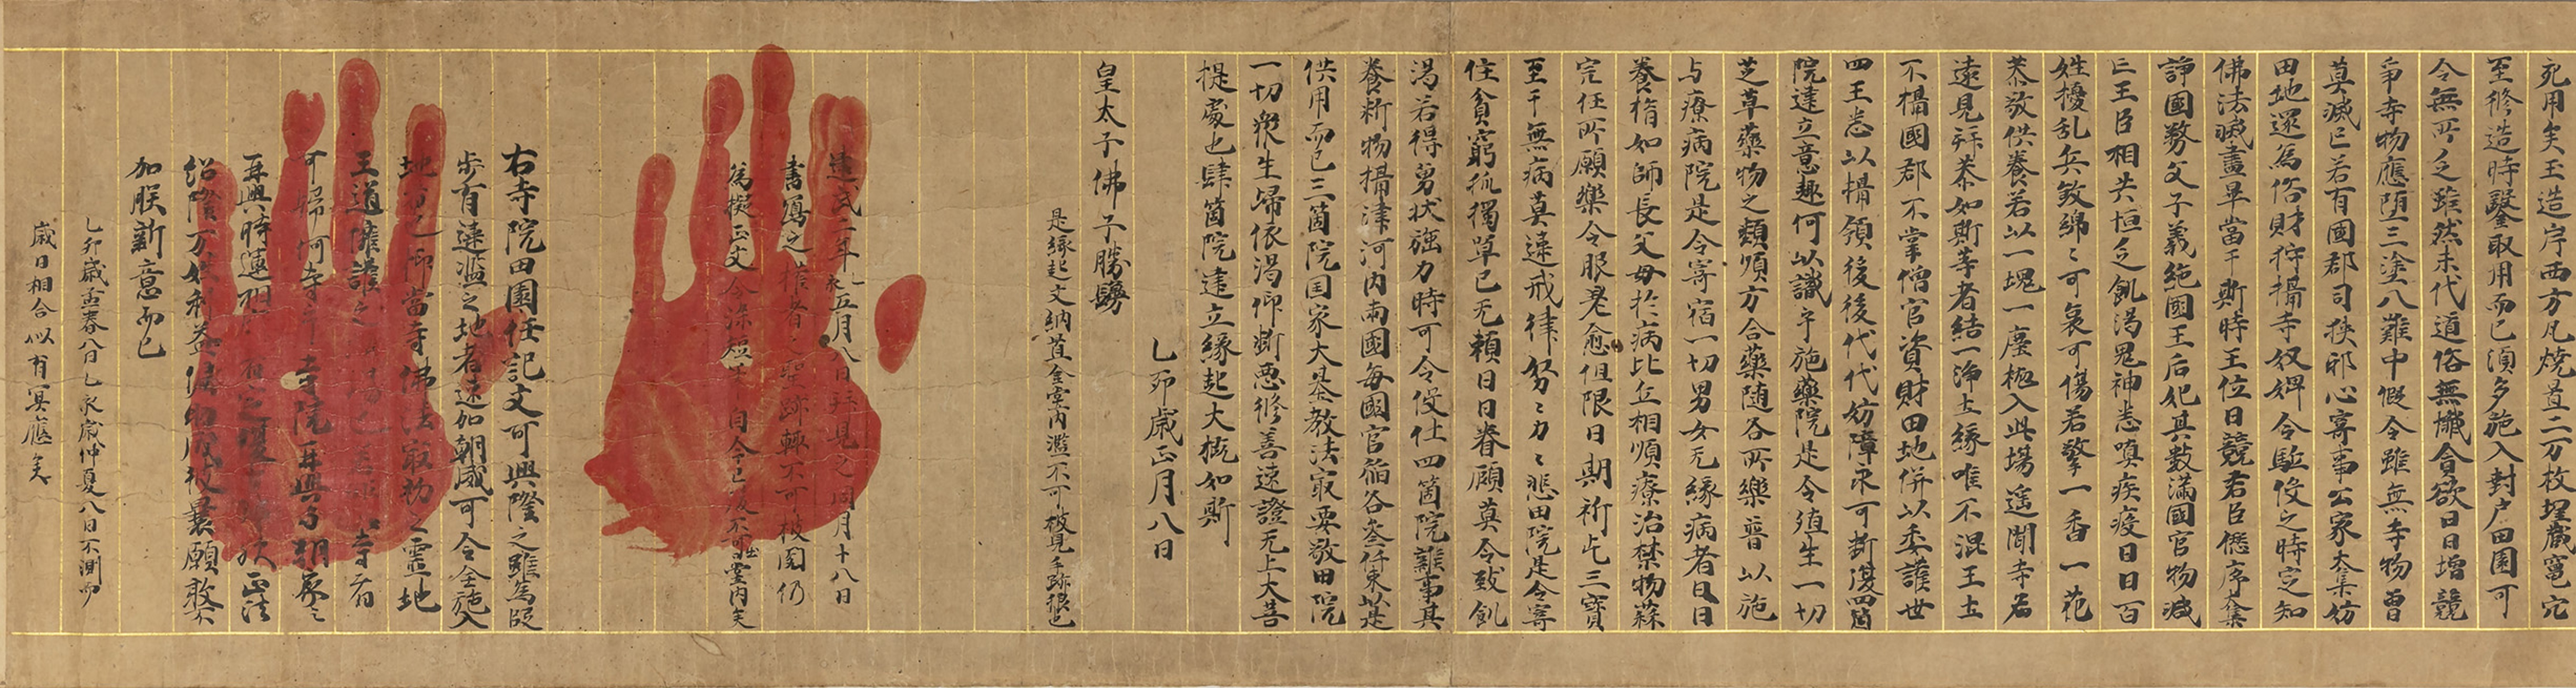 死用矣玉造岸西方瓦焼置二万枚埋蔵窖穴
至修造時鑿取用而已湏多施入封戸田園可
令無所乏雖然末代道俗無懺會欲日日増競
爭寺物應堕三塗八難中假令雖無寺物曽
莫滅已若有國郡司挾邪心寄事公家太集妨
田地還為俗財狩攝寺奴婢令駈役之時定知
佛法滅盡畢當于斯時王位日競君臣僁序太集
諍國務父子義絶國王后妃其數滿國官物減
亡王臣相共恒乏飢渇鬼神恚嗔疾疫日日百
姓擾乱兵敦綿ゝ可哀可傷若擎一香一花
恭敬供養若以一塊一塵抛入此場遥聞寺名
遠見拜恭如斯等者結一淨土縁唯不混王土
不攝國郡不掌僧官資財田地併以委護世
四王悉以攝領後後代代妨障永可断湲四箇
院建立意趣何以識乎施藥院是令殖生一切
芝草藥物之類順方合藥随各所樂普以施
与療病院是令寄宿一切男女无縁病者日日
養育如師長父母於病比丘相順療治禁物蒜
完任所願樂令服差愈但限日期祈乞三寳
至于無病莫違戒律努ゝ力ゝ悲田院是令寄
住貧窮孤獨單己无頼日日眷顧莫令致飢
渇若得勇状強力時可令役仕四箇院雜事其
養料物攝津河内兩國毎國官稲各参仟束以是
供用而已三箇院国家大基教法寂要敬田院
一切衆生歸依渇仰断悪修善速證无上大菩
提處也肆箇院建立縁起大概如斯
乙卯歳正月八日
皇太子佛子勝鬘
是縁起文納置金堂内濫不可披見手跡狼也
建武二年乙亥五月八日拜見之同月十八日
書寫之權者之聖跡輙不可披閲仍
為擬正文令染短毫自今已後不可出堂内矣
右寺院田園任記文可興隆之雖為段
歩有違濫之地者速加朝威可令全施入
地而已仰當寺佛法寂初之靈地
王道擁護之
可歸何寺乎寺院再興
再興時運
紹隆万姓利益
加朕新意而已
乙卯歳孟春八日乙亥歳仲夏八日不測而
歳日相合以有冥應矣